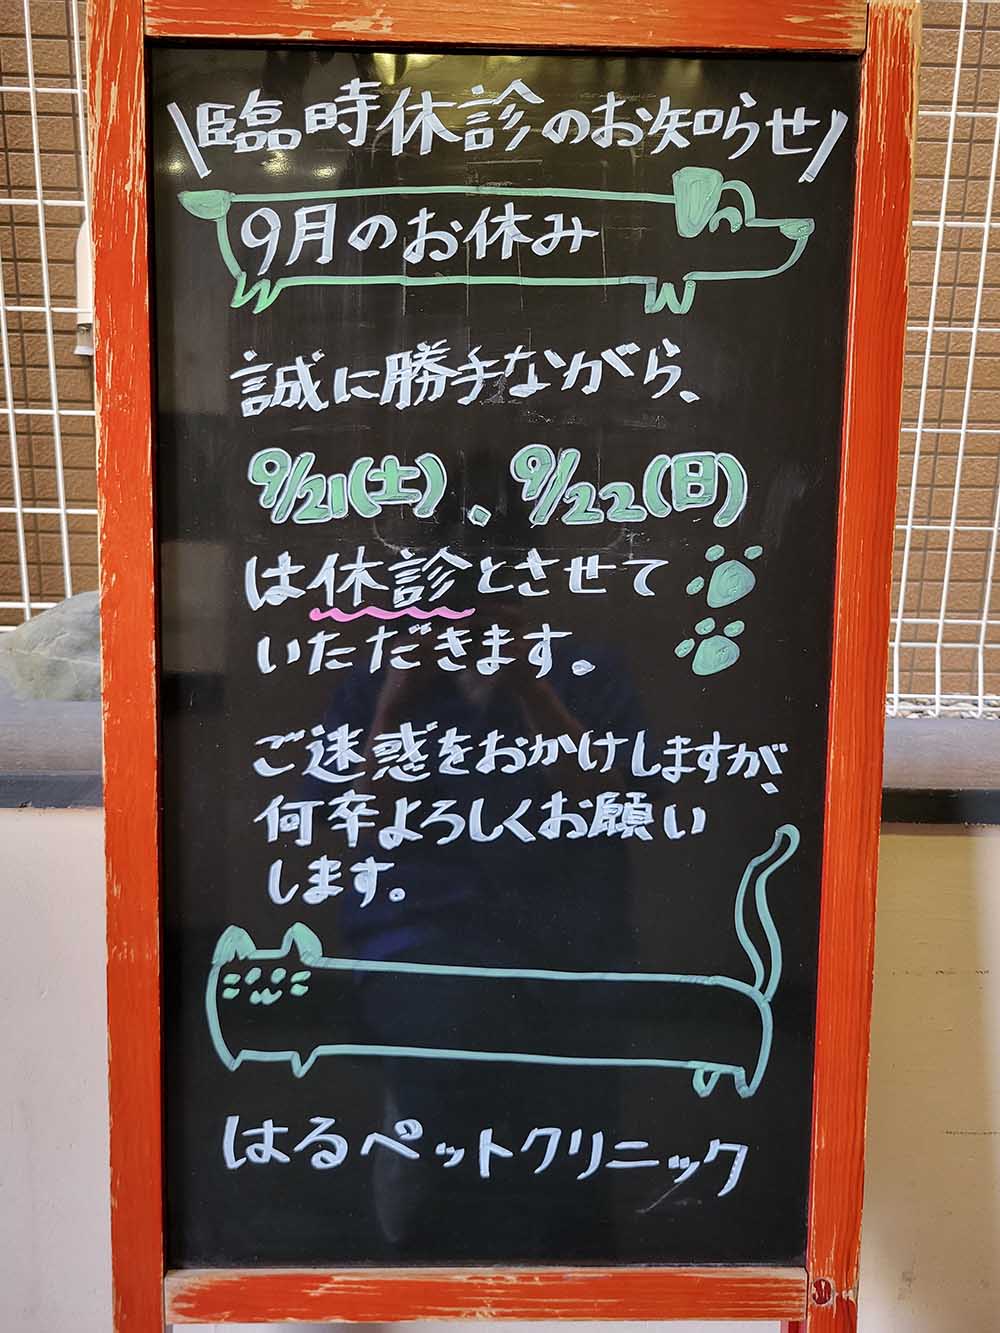 \臨時休診のお知らせ/
9月のお休み
誠に勝手ながら、
9/21(土)、9/22(日)
は休診とさせて
いただきます。
ご迷惑をおかけしますが、
何卒よろしくお願い
します。
はるペットクリニック